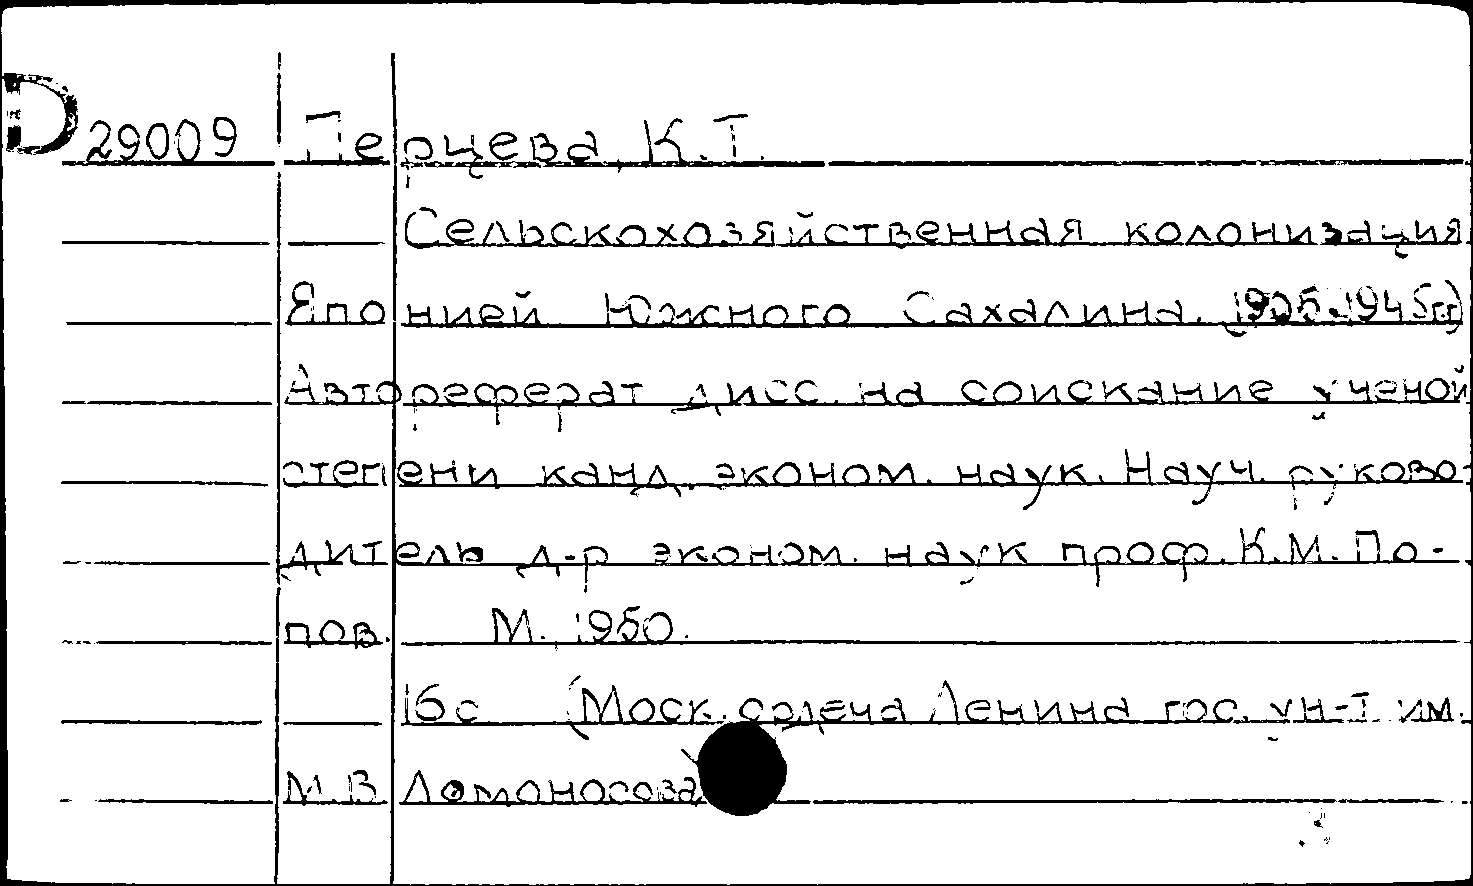 D 29009 Перцева, К.Т.
Сельскохозяйственная колонизация
Японией Южного Сахалина. (1905-1945гг.)
Автореферат дисс. на соискание ученой
степени канд. эконом. наук. Науч. руково-
дитель д-р эконом. наук проф. К.М. По-
пов. М. 1950.
16с (Моск. ордена Ленина гос. ун-т им.
М.В. Ломоносова)